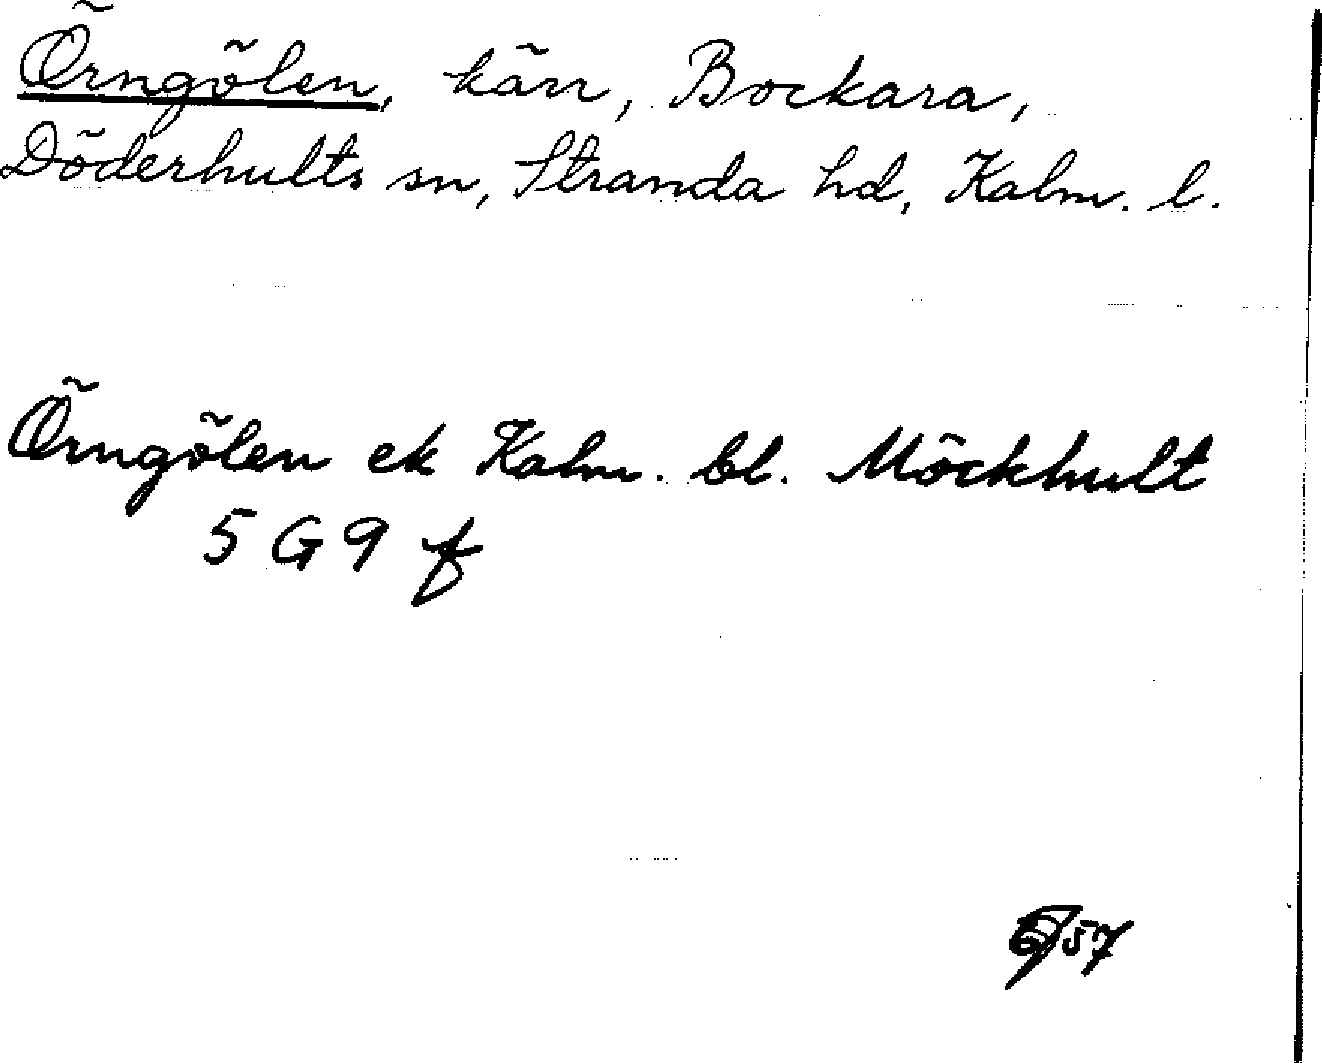 Örngölen, kärr, Bockara,
Döderhults sn, Stranda hd, Kalm. l.
Örngölen ek Kalm. bl. Möckhult
5 G 9 f
57